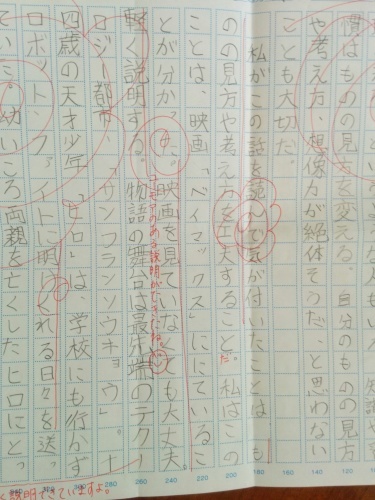 慣はものの見方を変える。自分のものの見方
や考え方、想像力が絶体そうだ、と思わない
ことも大切だ。
私がこの話を読んで気が付いたことは、も
のの見方や考え方を工夫することだ。私はこの
ことは、映画「ベイマックス」ににているこ
とが分かった。映画を見ていなくても大丈夫。
軽く説明する。物語の舞台は最先端のテクノ
ロジー都市「サンフランソウキョウ」。十
四歳の天才少年「ヒロ」は、学校にも行かず
ロボット・ファイトに明けくれる日々を送っ
ていた。幼いころ両親を亡くしたヒロにとっ
く説明できていますよ。
120
140
160
180
200
220
240
260
280
300